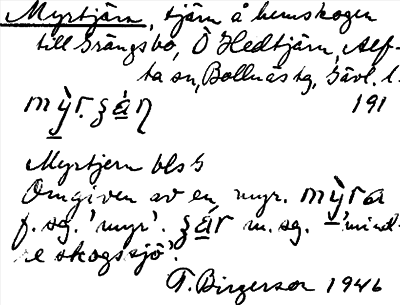 Myrtjärn, tjärn å hemskogen
till Grängsbo, Ö Hedtjärn, Alf-
ta sn, Bollnäs tg, Gävl. l.
191
Myrtjern bls G
Omgiven av en myr.
f. sg. 'myr'. m. sg. 'mind-
re skogssjö'.
T. Birgerson 1946